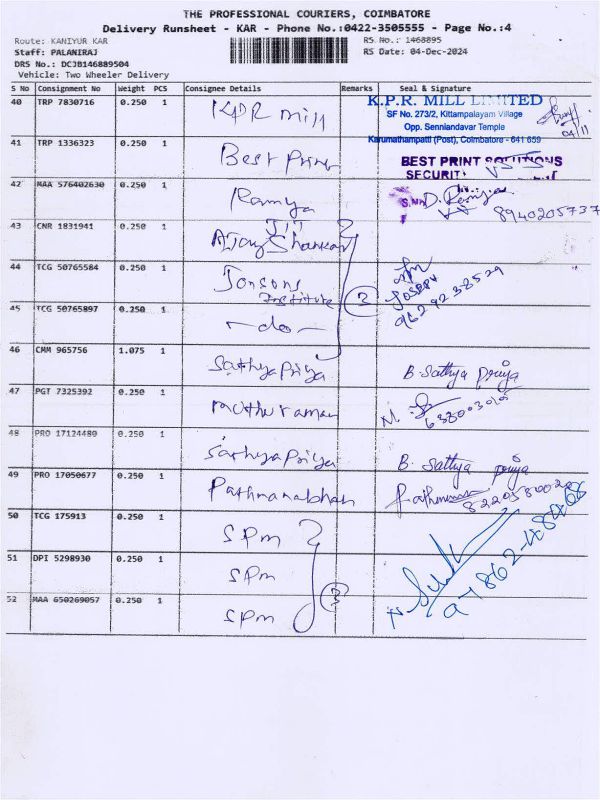 THE PROFESSIONAL COURIERS, COIMBATORE
Delivery Runsheet - KAR - Phone No.:0422-3505555 - Page No.:4
Route: KANIYUR KAR
RS No.: 1468895
Staff: PALANIRAJ
RS Date: 04-Dec-2024
DRS No.: DCJB146889504
Vehicle: Two Wheeler Delivery
S No Consignment No Weight PCS Consignee Details Remarks Seal & Signature
40 TRP 7830716 0.250 1 KPR mill
K.P.R. MILL LIMITED
SF No. 273/2, Kittampalayam Village
Opp. Senniandavar Temple
Karumathampatti (Post), Coimbatore - 641 659
04/11
41 TRP 1336323 0.250 1 Best Print
BEST PRINT SOLUTIONS
SECURITY
42 MAA 576402630 0.250 1 Ramya
D. Ramya
8940205737
43 CNR 1831941 0.250 1 JIT
Ajay Shankar
44 TCG 50765584 0.250 1 Jonsons
Institute
3
Joseph
9629238529
45 TCG 50765897 0.250 1 -do-
46 CMM 965756 1.075 1 Sathya Priya B. Sathya priya
47 PGT 7325392 0.250 1 muthuraman
48 PRO 17124480 0.250 1 Sathya Priya B. Sathya priya
49 PRO 17050677 0.250 1 Pathmanabhan
50 TCG 175913 0.250 1 SPM
51 DPI 5298930 0.250 1 SPM
3
52 MAA 650269057 0.250 1 SPM